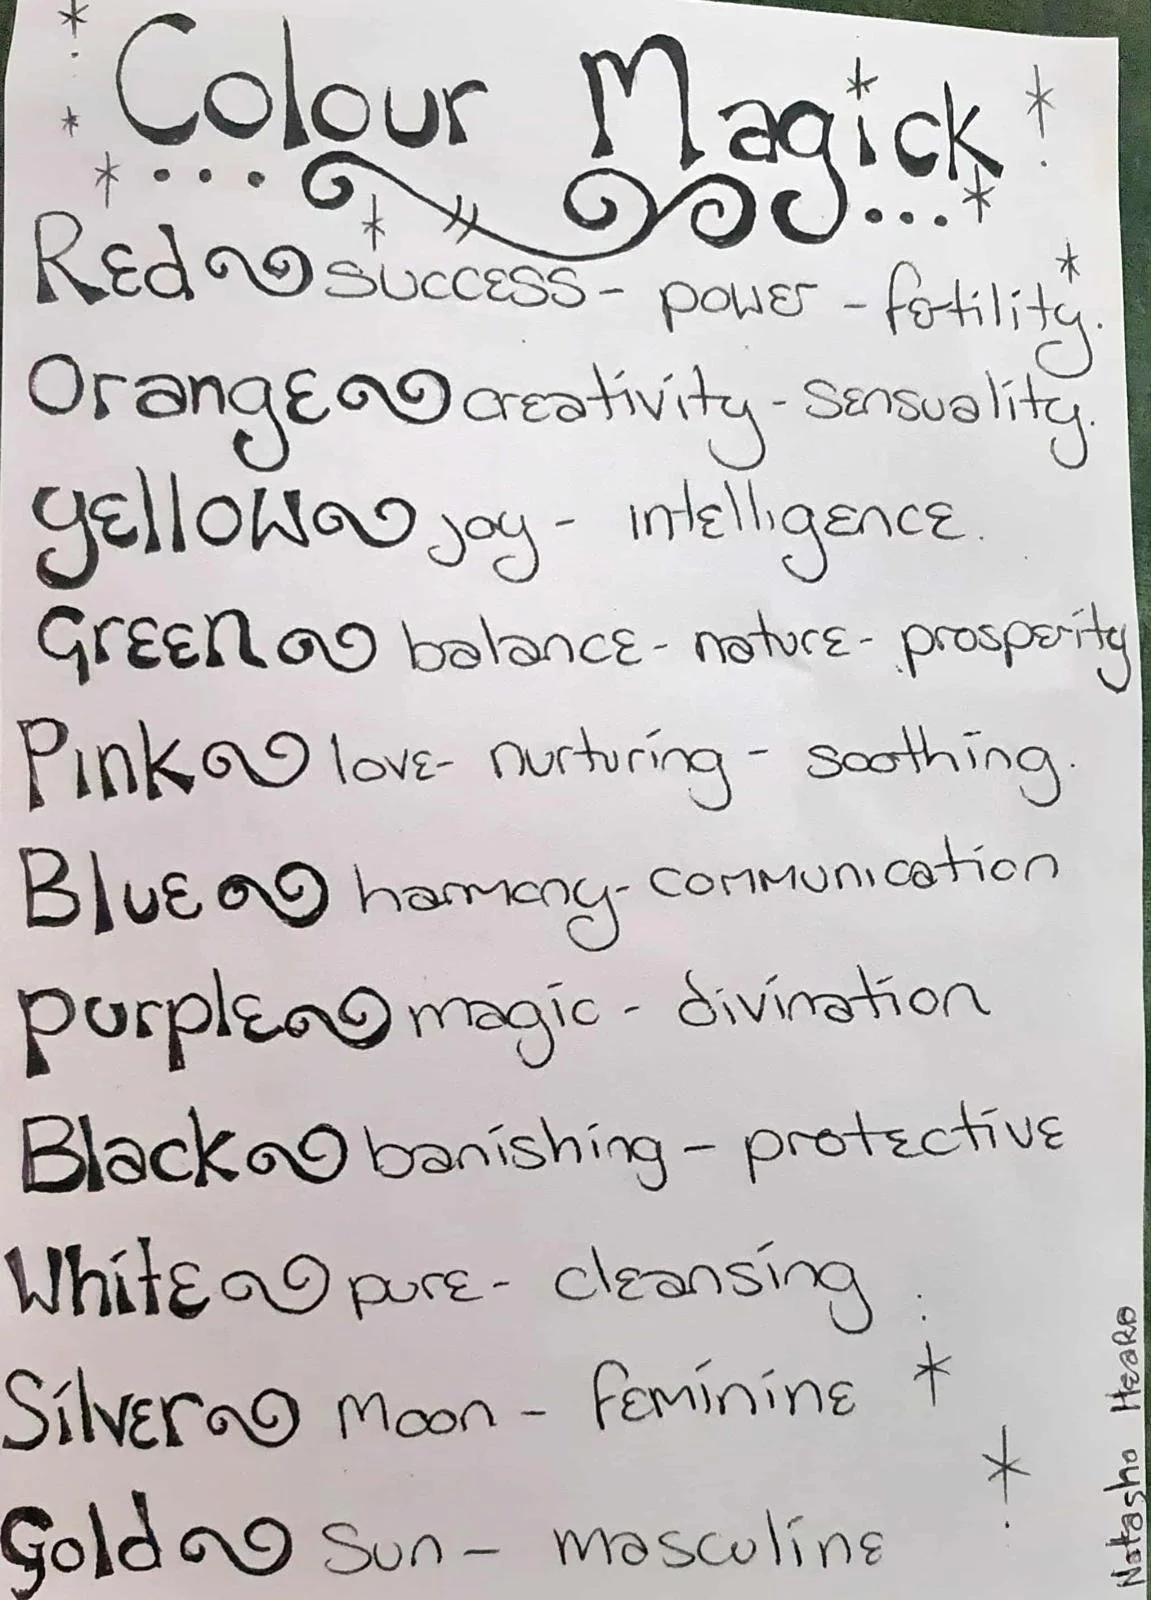 Colour Magick
Red success - power - fertility.
Orange creativity - sensuality.
Yellow joy - intelligence.
Green balance - nature - prosperity
Pink love - nurturing - soothing.
Blue harmony - communication
Purple magic - divination
Black banishing - protective
White pure - cleansing
Silver Moon - feminine
Gold Sun - masculine
Natasha Heard